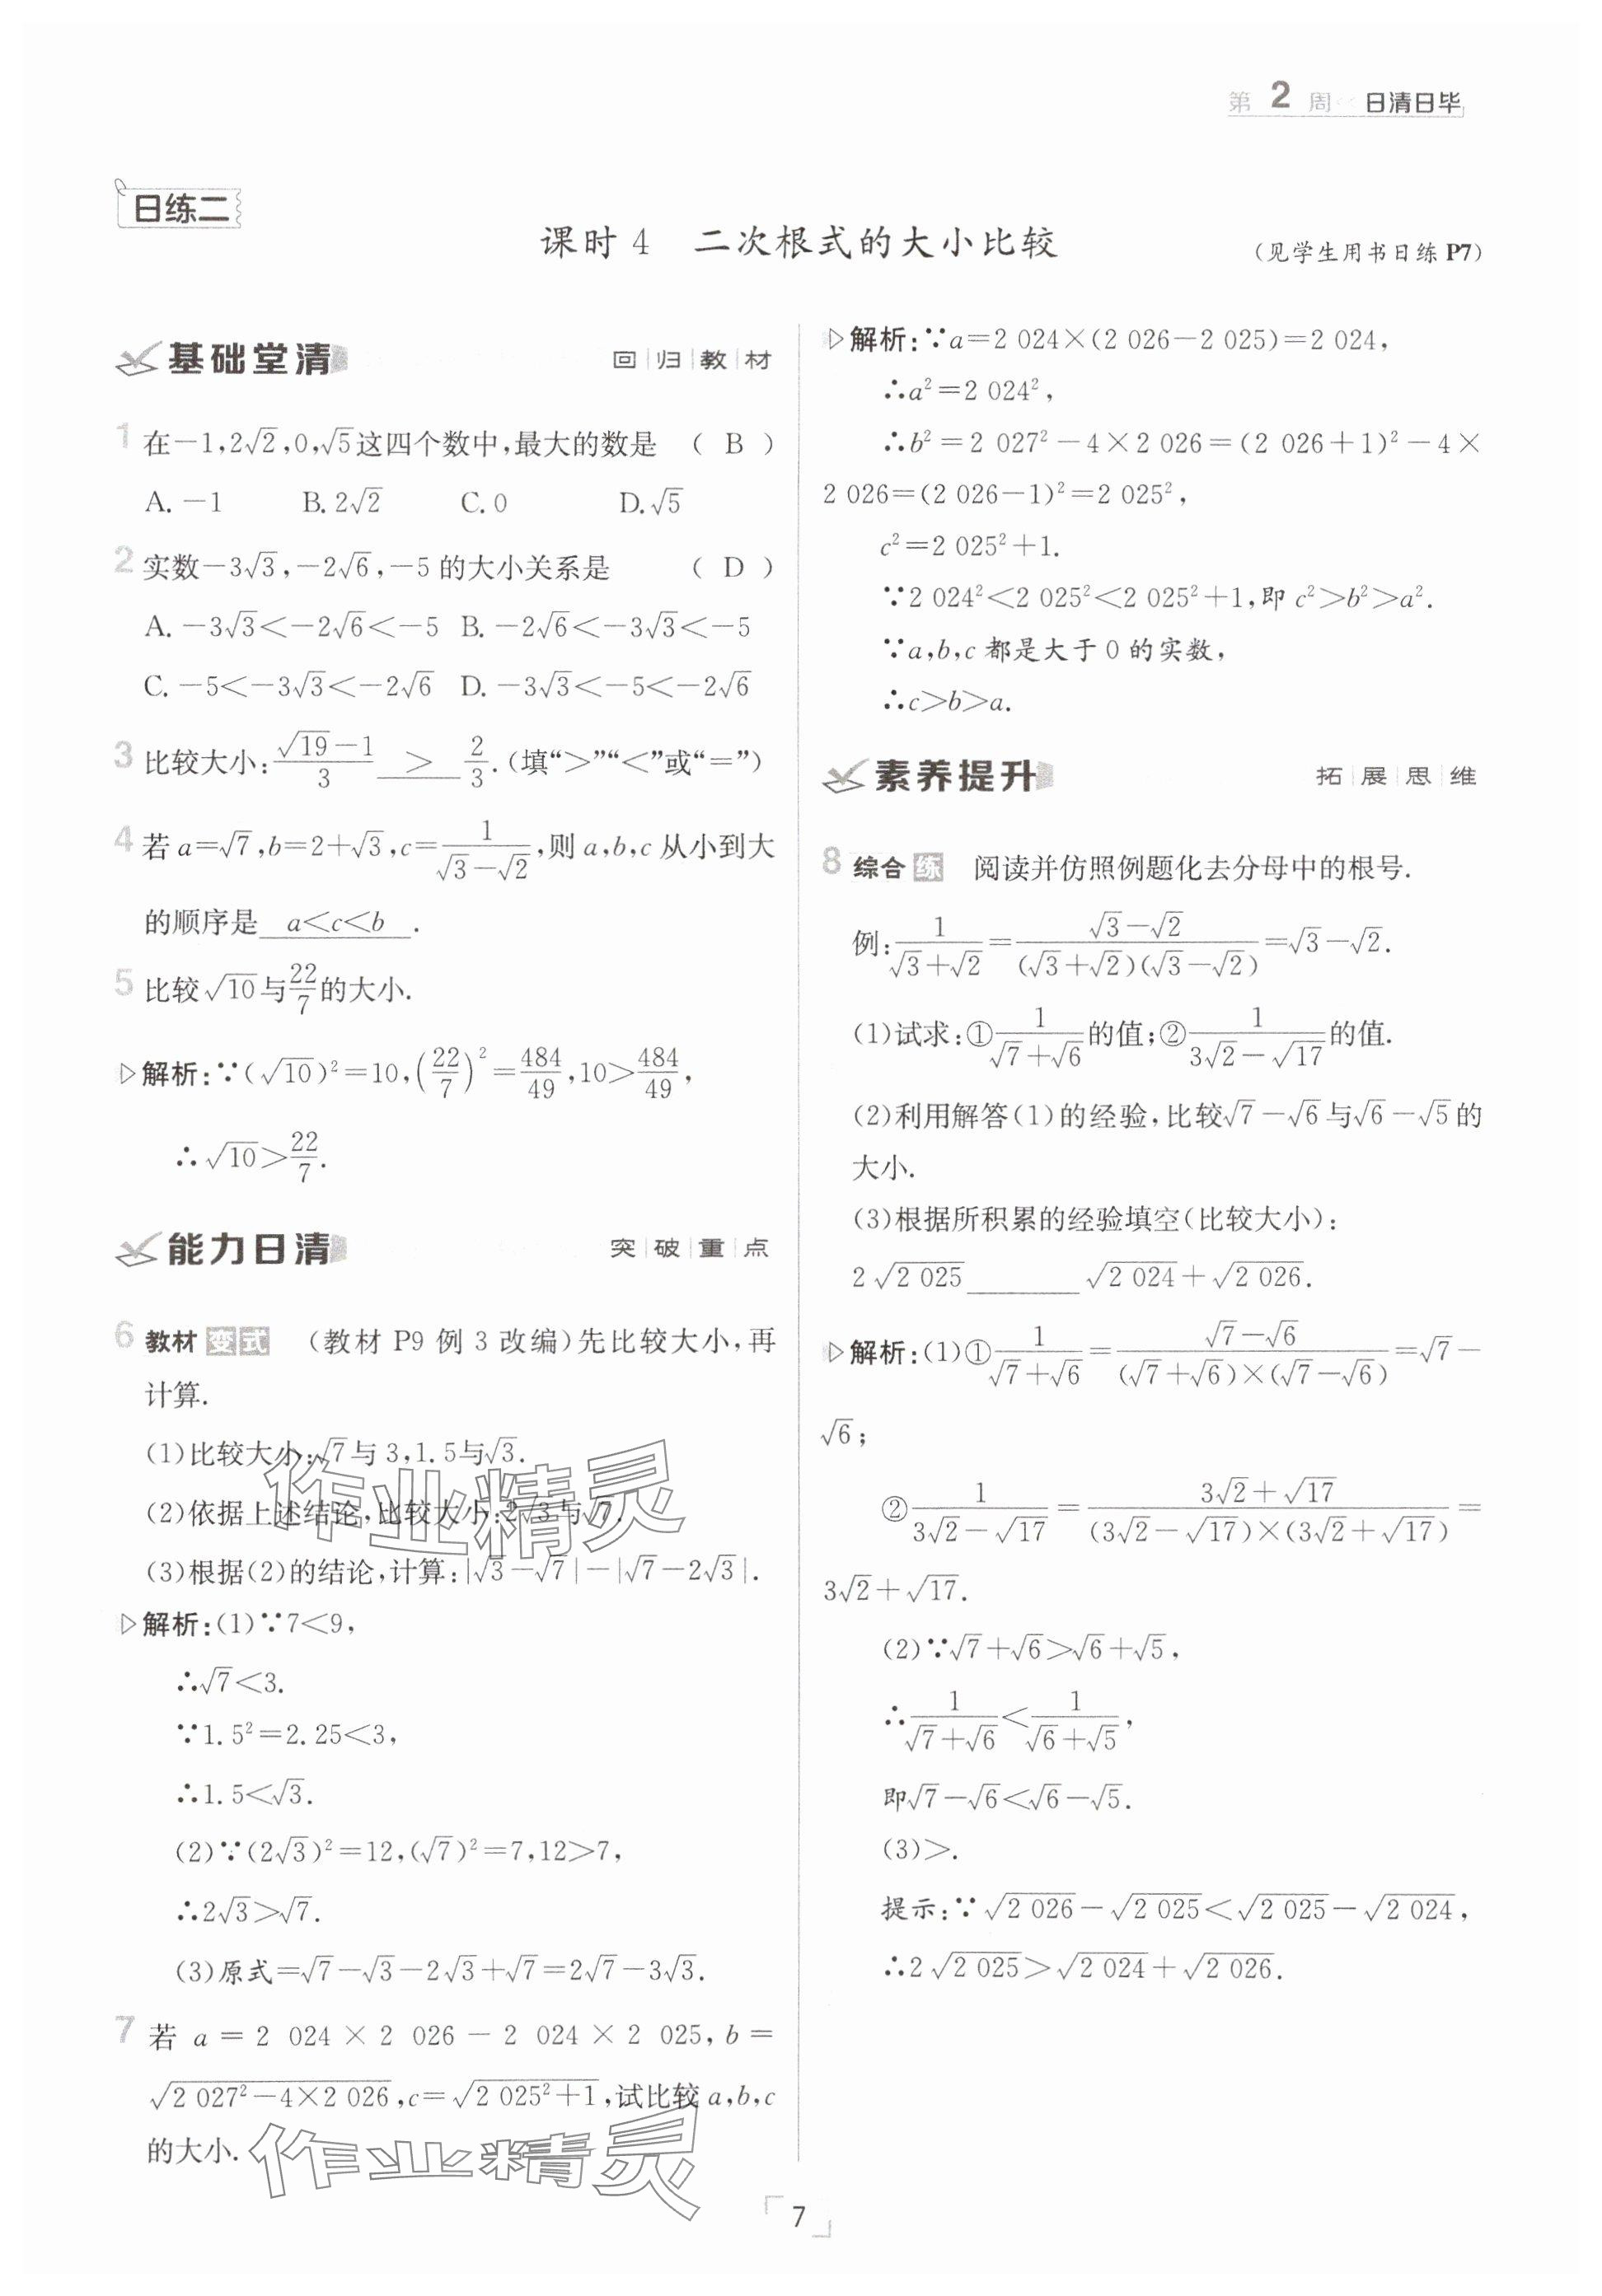 第 2 周 日清日毕
日练二
课时 4 二次根式的大小比较 (见学生用书日练 P7)
基础堂清 回归教材
1 在−1,2√2,0,√5这四个数中,最大的数是 ( B )
A. −1 B. 2√2 C. 0 D. √5
2 实数−3√3,−2√6,−5 的大小关系是 ( D )
A. −3√3<−2√6<−5 B. −2√6<−3√3<−5
C. −5<−3√3<−2√6 D. −3√3<−5<−2√6
3 比较大小:(√19−1)/3 > 2/3.(填“>”“<”或“=”)
4 若 a=√7,b=2+√3,c=1/(√3−√2),则 a,b,c 从小到大
的顺序是 a<c<b .
5 比较√10与22/7的大小.
▷解析:∵(√10)²=10,(22/7)²=484/49,10>484/49,
∴√10>22/7.
能力日清 突破重点
6 教材 变式 (教材 P9 例 3 改编)先比较大小,再
计算.
(1)比较大小:√7与 3,1.5与√3.
(2)依据上述结论,比较大小:2√3与√7.
(3)根据(2)的结论,计算:|√3−√7|−|√7−2√3|.
▷解析:(1)∵7<9,
∴√7<3.
∵1.5²=2.25<3,
∴1.5<√3.
(2)∵(2√3)²=12,(√7)²=7,12>7,
∴2√3>√7.
(3)原式=√7−√3−2√3+√7=2√7−3√3.
7 若 a = 2 024 × 2 026 − 2 024 × 2 025, b =
√(2 027²−4×2 026),c=√(2 025²+1),试比较 a,b,c
的大小.
▷解析:∵a=2 024×(2 026−2 025)=2 024,
∴a²=2 024²,
∴b²=2 027²−4×2 026=(2 026+1)²−4×
2 026=(2 026−1)²=2 025²,
c²=2 025²+1.
∵2 024²<2 025²<2 025²+1,即 c²>b²>a².
∵a,b,c 都是大于 0 的实数,
∴c>b>a.
素养提升 拓展思维
8 综合 练 阅读并仿照例题化去分母中的根号.
例:1/(√3+√2)=(√3−√2)/((√3+√2)(√3−√2))=√3−√2.
(1)试求:①1/(√7+√6)的值;②1/(3√2−√17)的值.
(2)利用解答(1)的经验,比较√7−√6与√6−√5的
大小.
(3)根据所积累的经验填空(比较大小):
2√2 025________√2 024+√2 026.
▷解析:(1)①1/(√7+√6)=(√7−√6)/((√7+√6)×(√7−√6))=√7−
√6;
②1/(3√2−√17)=(3√2+√17)/((3√2−√17)×(3√2+√17))=
3√2+√17.
(2)∵√7+√6>√6+√5,
∴1/(√7+√6)<1/(√6+√5),
即√7−√6<√6−√5.
(3)>.
提示:∵√2 026−√2 025<√2 025−√2 024,
∴2√2 025>√2 024+√2 026.
作业精灵
作业精灵
7